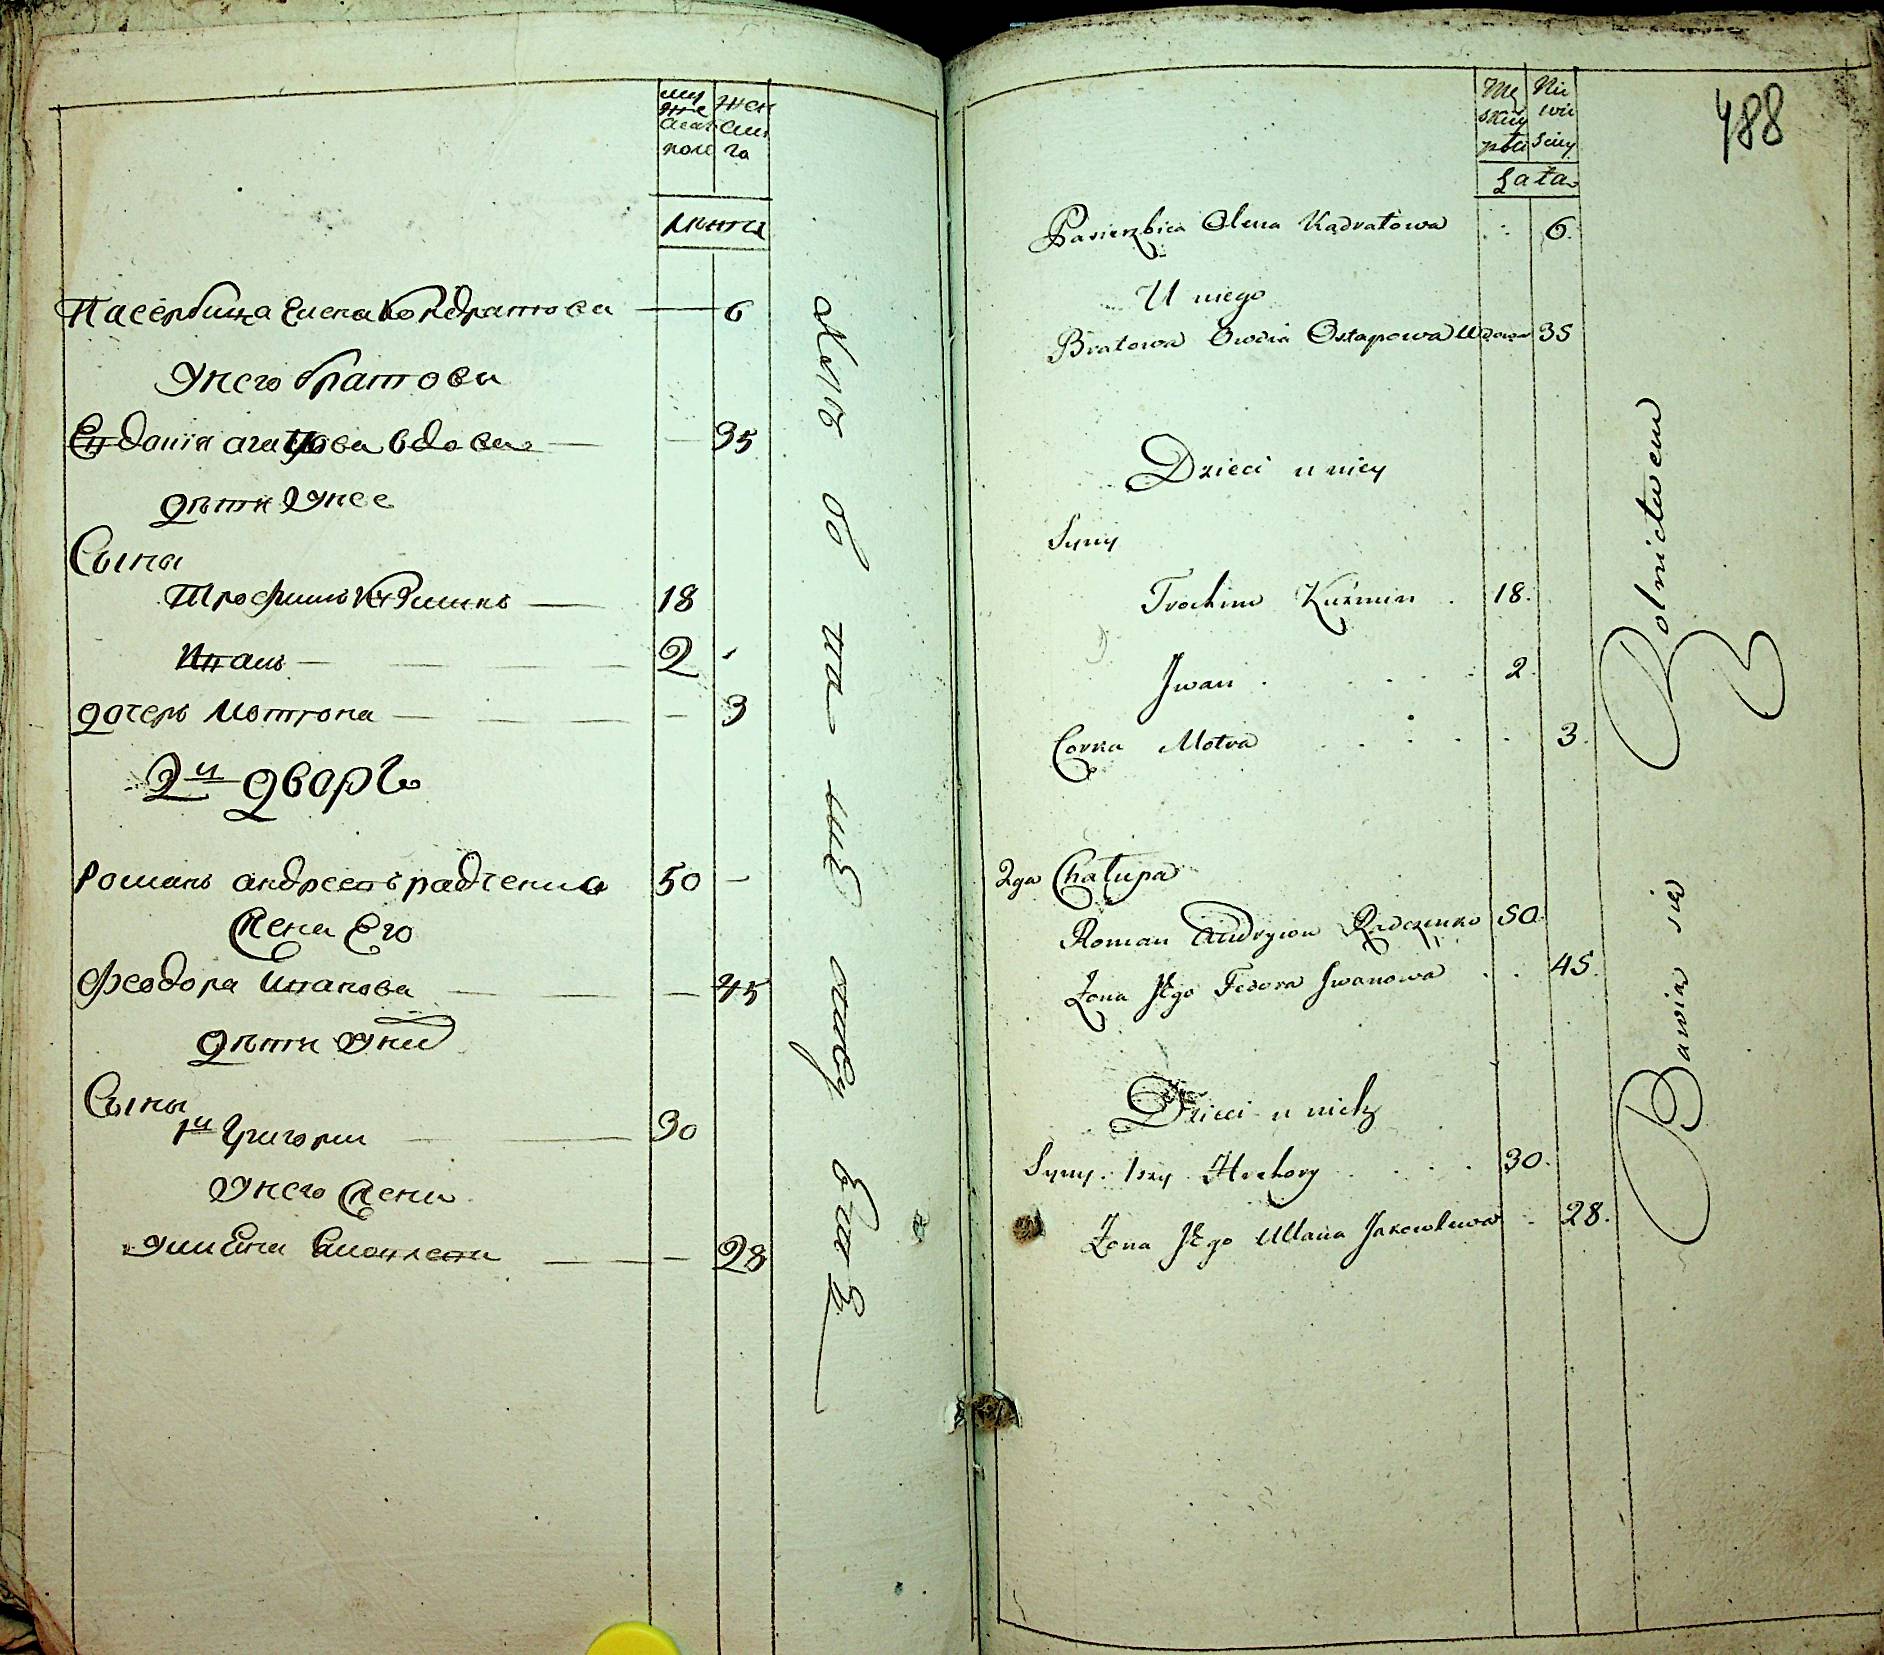 муже
ска
пола
жен
ска
го
Лѣта
Пасербица Елена Кондратова — 6
У него братова
Евдокія вдова — 35
Дѣти у нее
Сыны
Трофимъ — 18
Иванъ — 2
дочерь Мотрона — 3
2й дворъ
Романъ Андреевъ Радченко 50 —
Жена Его
Феодора Иванова — 45
Дѣти у них
Сыны
1й Григорий — 30
У него жена
— 28
488
Mę
skiey
płci
Nie
wie
sciey
Lata
Pasierzbica Olena Kądratowa 6.
U niego
Bratowa Owdia Ostapowa Wdowa 35
Dzieci u niey
Syny
Trochim Kuźmin . 18.
Jwan . . . . . 2.
Corka Motra . . . . . 3.
2ga Chałupa
Roman Andryiow Radczenko 50.
Żona Jego Fedora Jwanowa . . 45.
Dzieci u nich
Syny. 1szy Hrehory . . . . 30.
Żona Jego Ullana Jakowlewa . 28.
Bawią się Rolnictwem